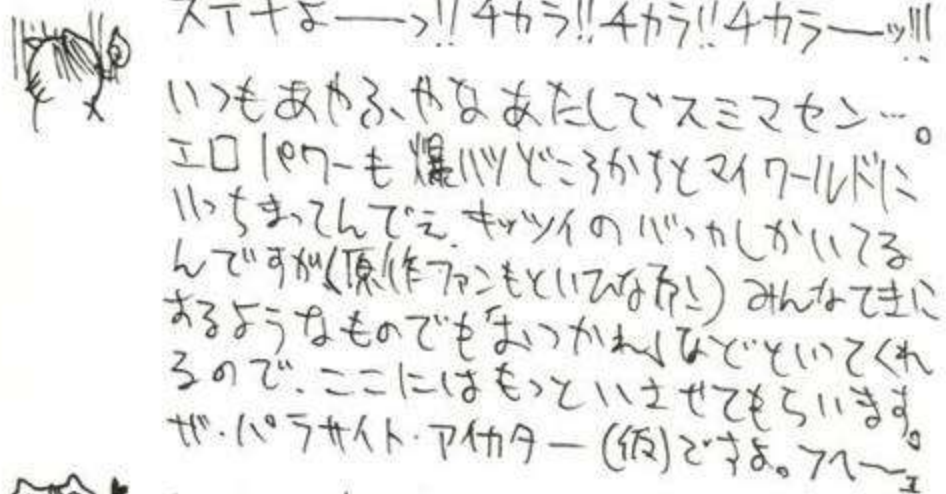 ステキよ――っ!!チカラ!!チカラ!!チカラ――ッ!!!
いつもあやふやなあたしでスミマセン…。
エロパワーも爆バツどころかちとマイワールドに
いっちまってんでえ、キッツイのバッカしかいてる
んですが(原作ファンもといひな
)みんなてきに
あるようなものでも「おつかれ」などといってくれ
るので、ここにはもっといさせてもらいます。
ザ・パラサイト・アイカター(仮)ですよ。フヘ〜